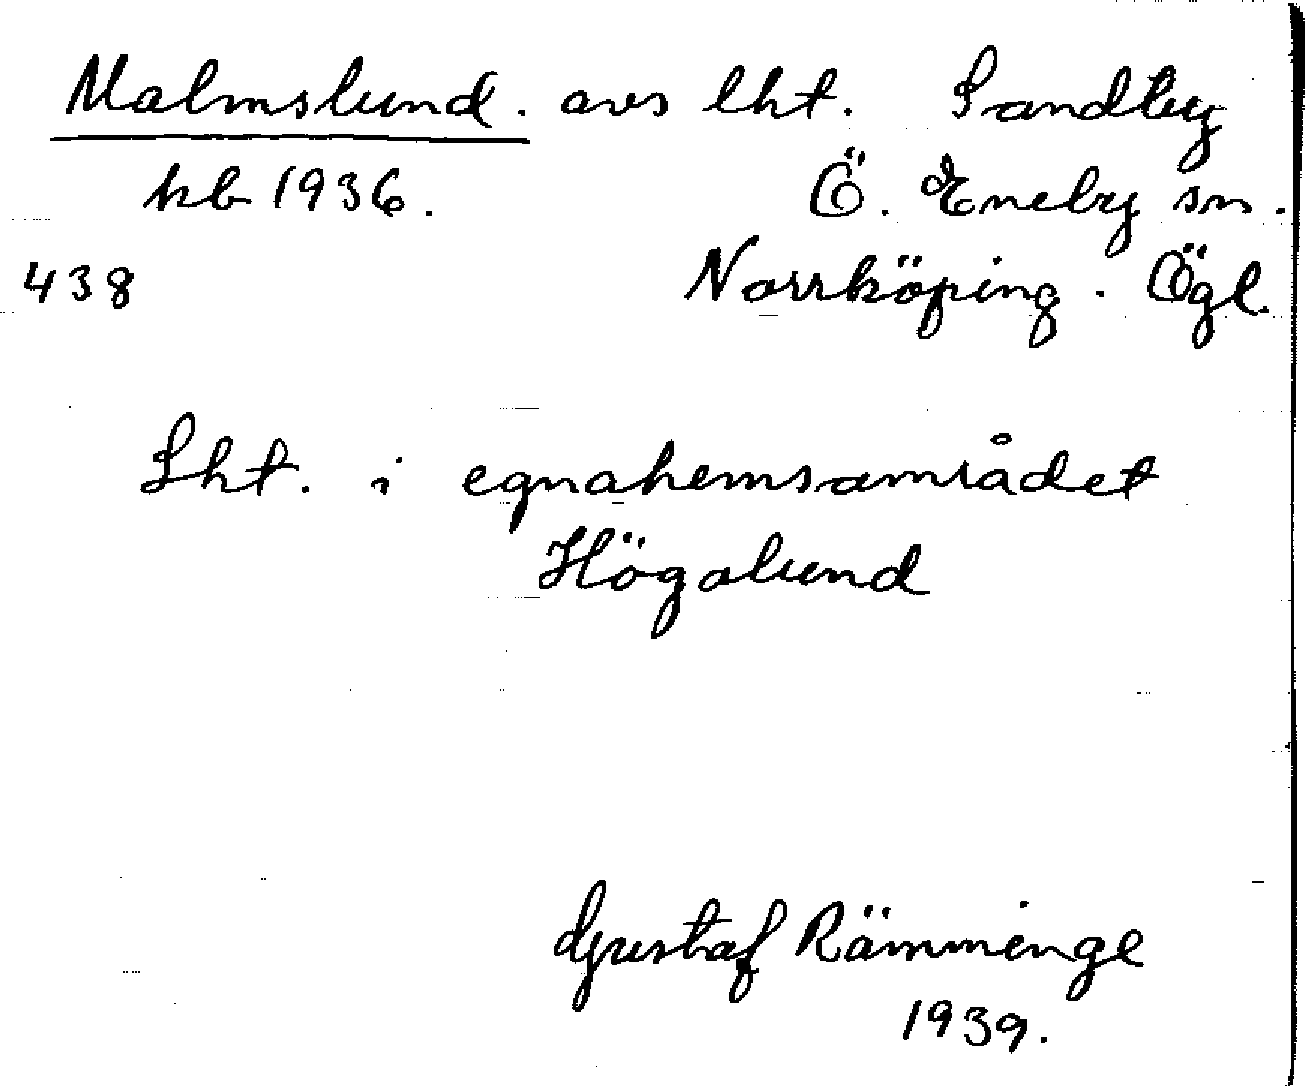 Malmslund. avs lht. Sandby
kb 1936. Ö. Eneby sn.
438 Norrköping. Ögl.
Lht. i egnahemsområdet
Högalund
Gustaf Rämminge
1939.